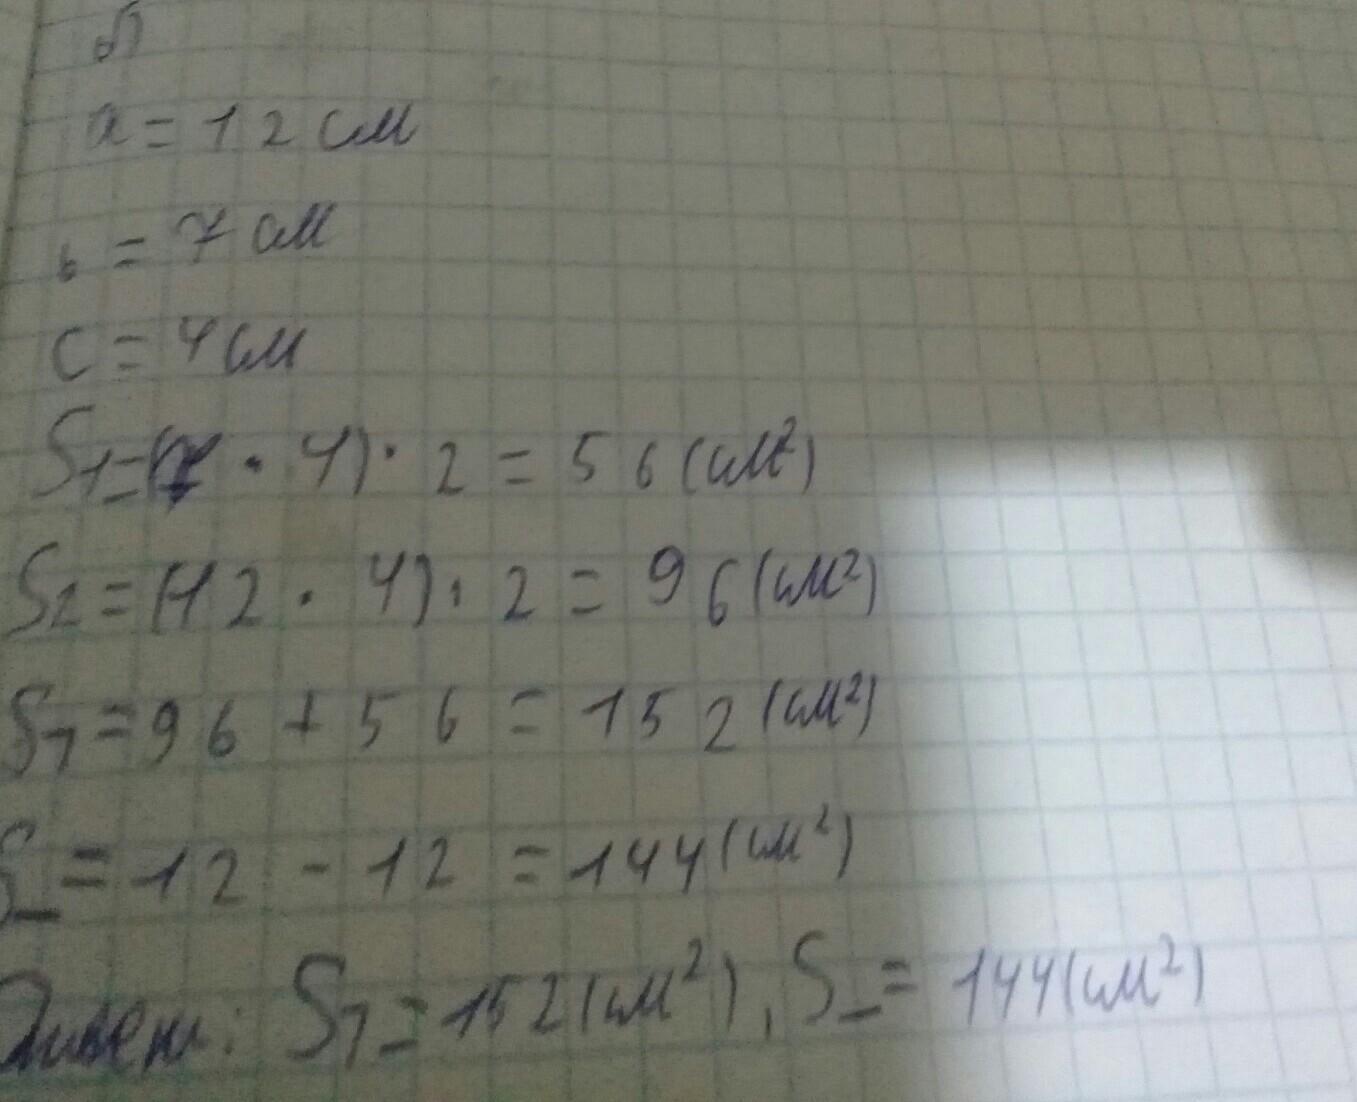 б)
a = 12 см
b = 7 см
c = 4 см
S1 = (7 · 4) · 2 = 56 (см²)
S2 = (12 · 4) · 2 = 96 (см²)
S7 = 96 + 56 = 152 (см²)
S_ = 12 - 12 = 144 (см²)
Ответ: S7 = 152 (см²), S_ = 144 (см²)